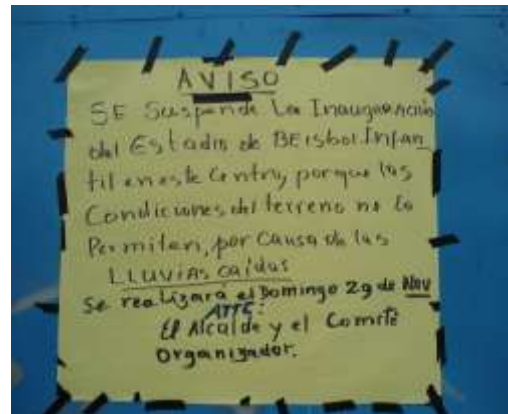 AVISO
SE Suspende La Inauguración
del Estadio de BEisbol Infan
til en este Centro, porque las
Condiciones del terreno no lo
Permiten, por causa de las
LLUVIAS caídas
Se realizará el Domingo 29 de Nov
ATTE:
El Alcalde y el Comité
Organizador.